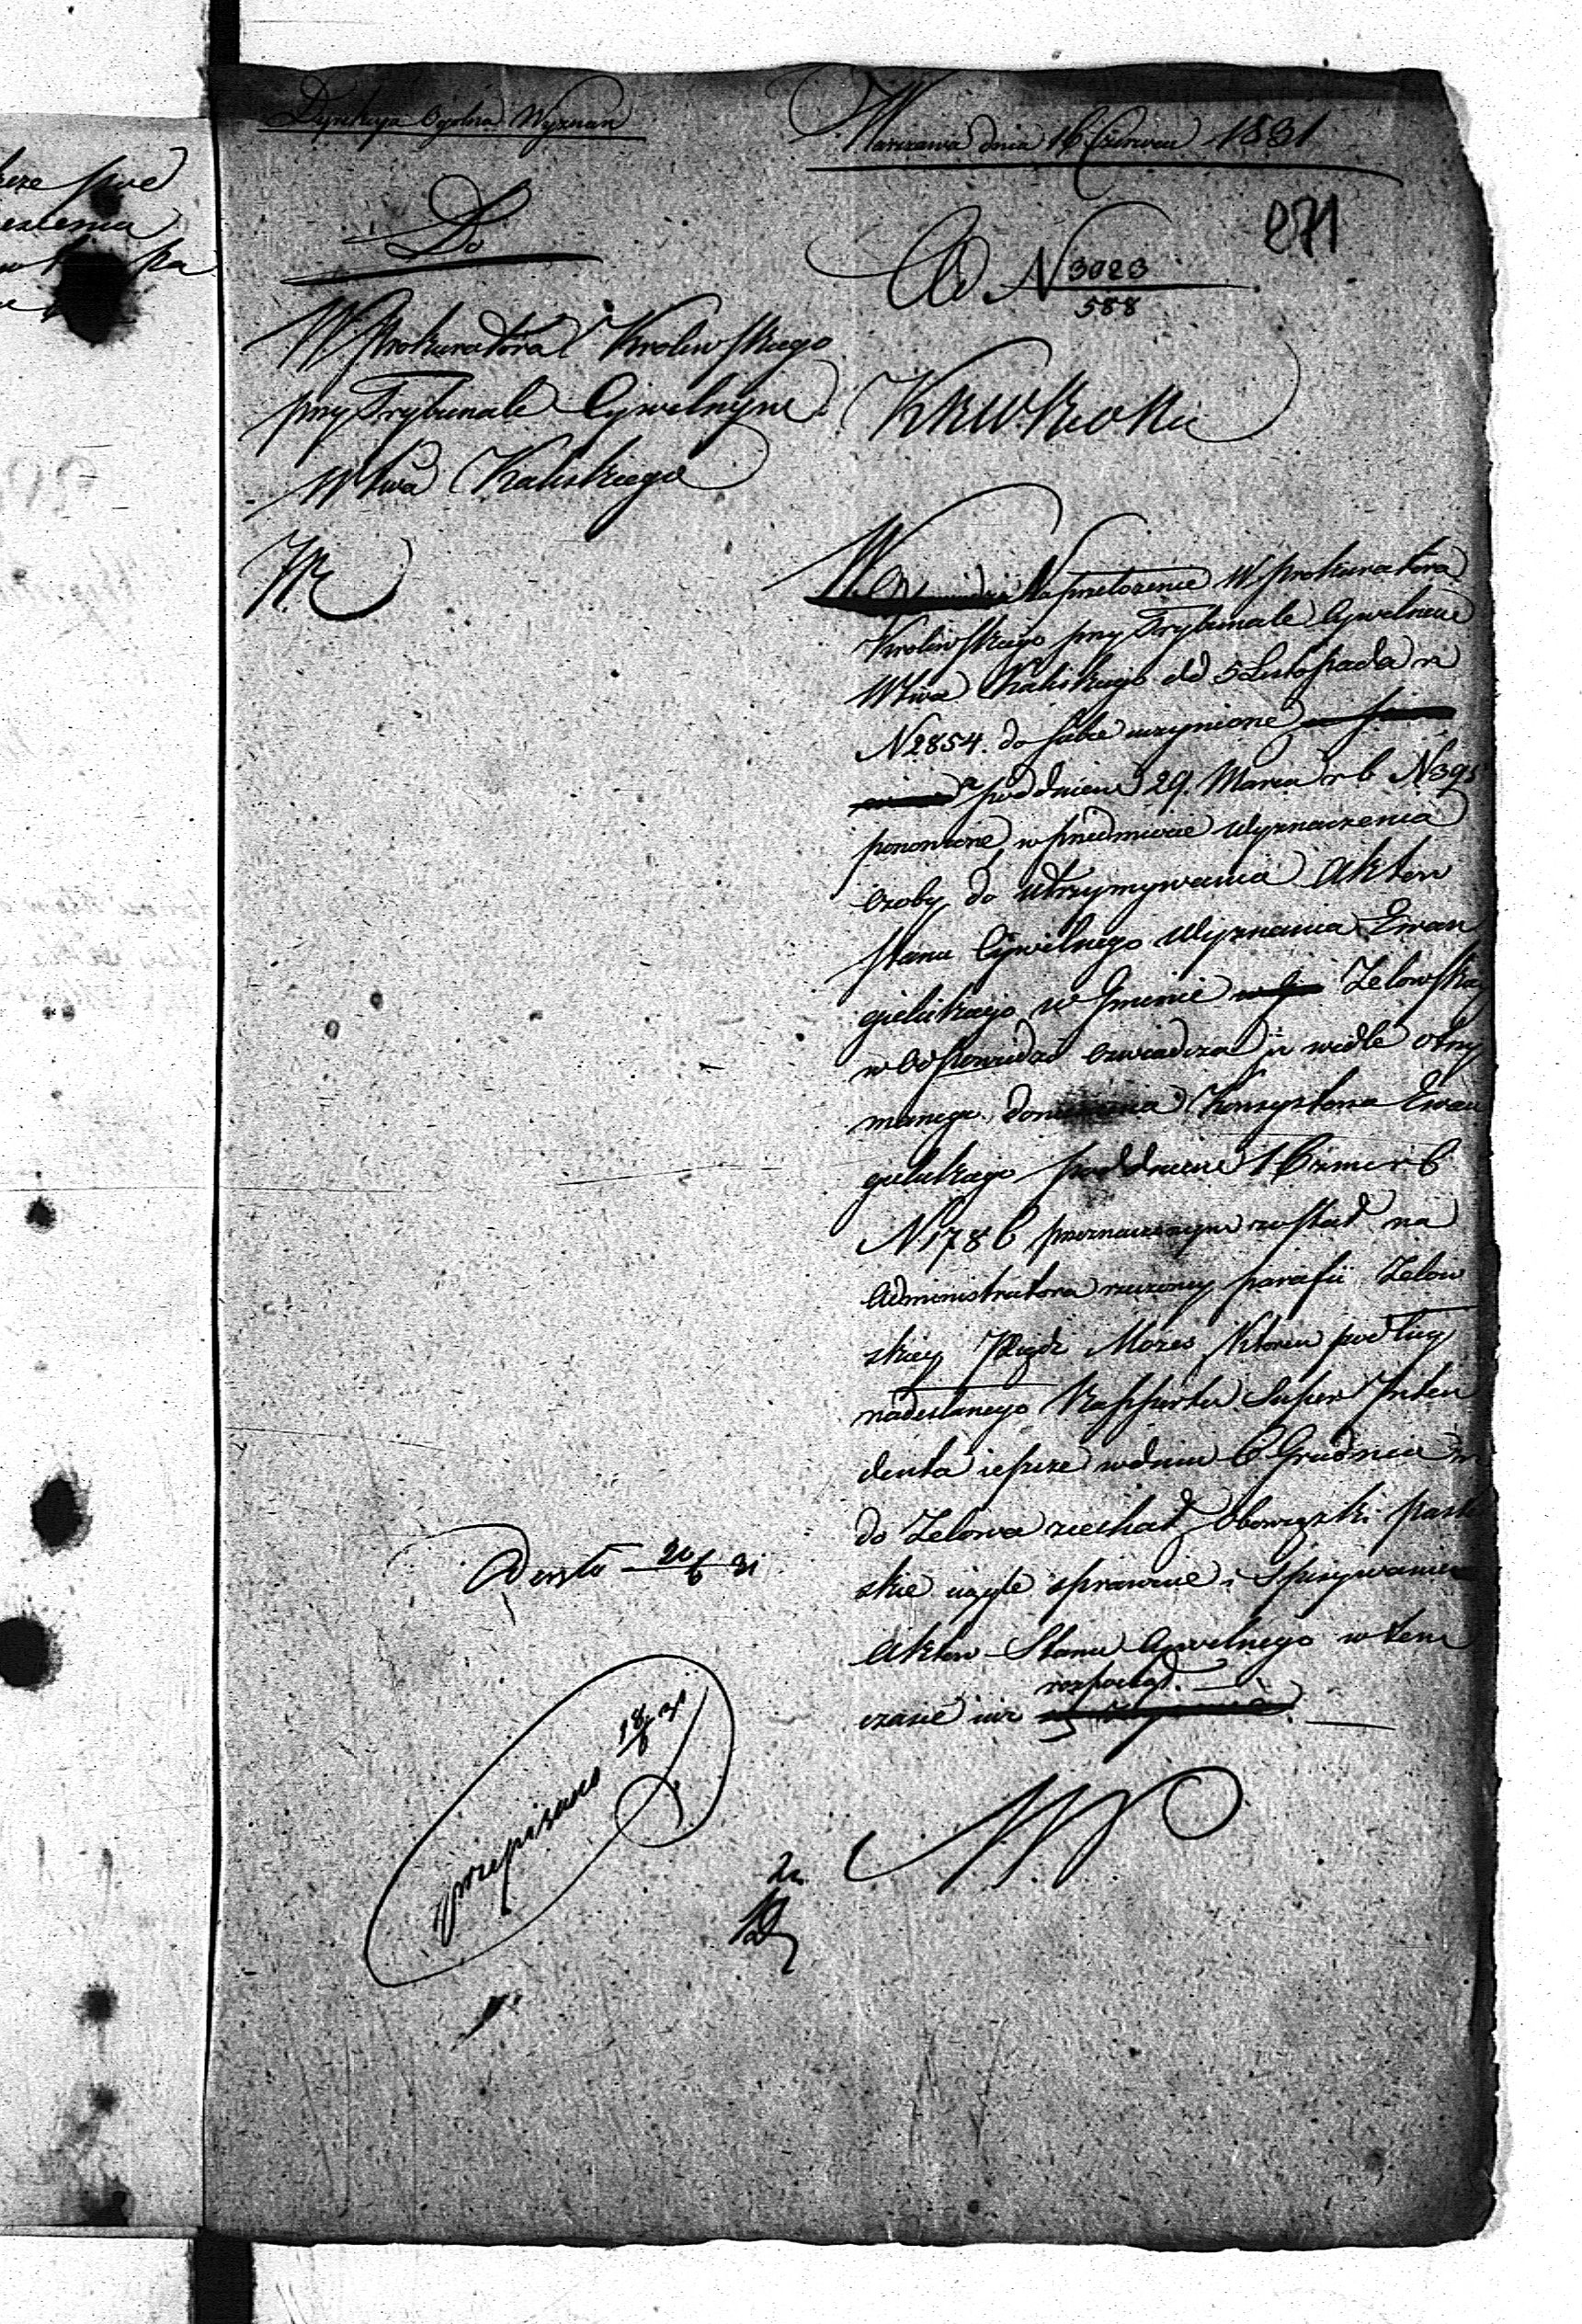 Dyrekcya Ogólna Wyznań
Warszawa dnia 16 Czerwca 1831
271
Do
Ad N 3023
588
W Prokuratora Krolewskiego
przy Trybunale Cywilnym
Wtwa Kaliskiego
KRWR i OP
Na przełozenie W Prokuratora
Krolewskiego przy Trybunale Cywilnem
Wtwa Kaliskiego dd 5 Listopada
N 2854. do siebie uczynione
a pod dniem 29 Marca r b N 395
ponowione, w przedmiocie wyznaczenia
osoby do utrzymywania Aktow
Stanu Cywilnego Wyznania Ewan
gielickiego w Gminie Zelowskiey
w odpowiedzi oswiadcza iż wedle otrzy
manego doniesienia Konsystorza Ewan
gielickiego pod dniem 1 Czerwca r b
N 178 przeznaczonym został na
Administratora rzeczoney parafii Zelow
skiey Xiądz Mozes ktoren podług
nadesłanego Rapportu Super Inten
denta ieszcze w dniu 6 Grudnia
do Zelowa ziechał, Obowiązki paster
skie ciągle sprawuie i Spisywanie
Aktow Stanu Cywilnego w tem
rozpoczął.
czasie iuż
20/6 31
przepisano 18/6 31